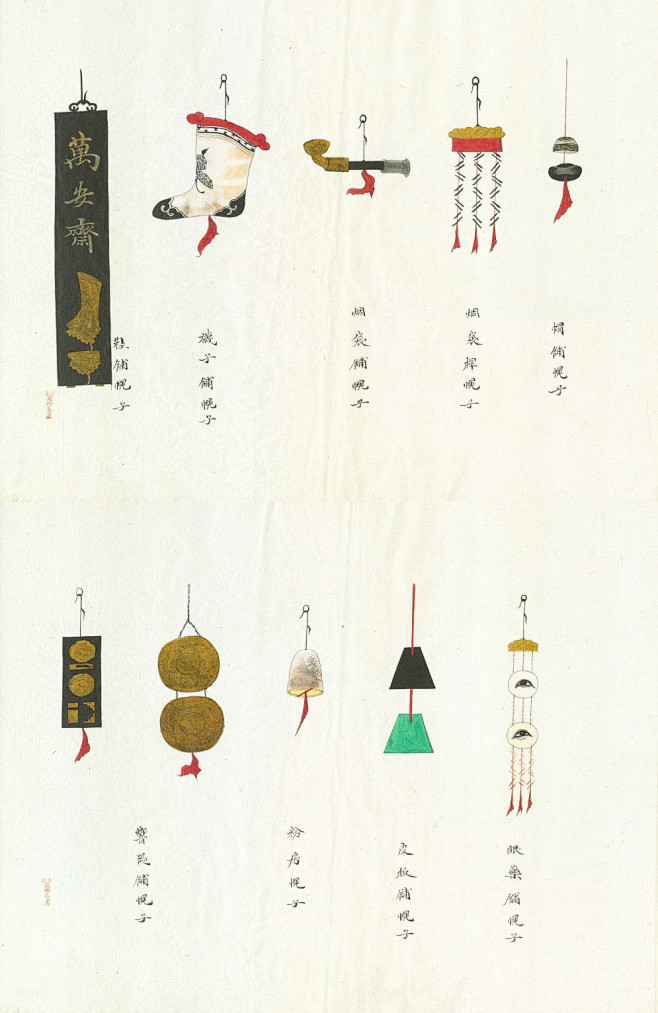 帽舖幌子
烟袋桿幌子
烟袋舖幌子
襪子舖幌子
萬安齋
鞋舖幌子
眼藥舖幌子
皮舖幌子
粉房幌子
響器舖幌子